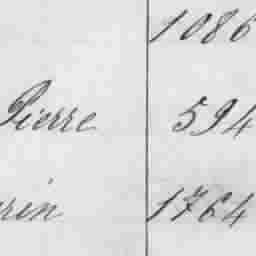 1086
Pierre 594
rin 1764